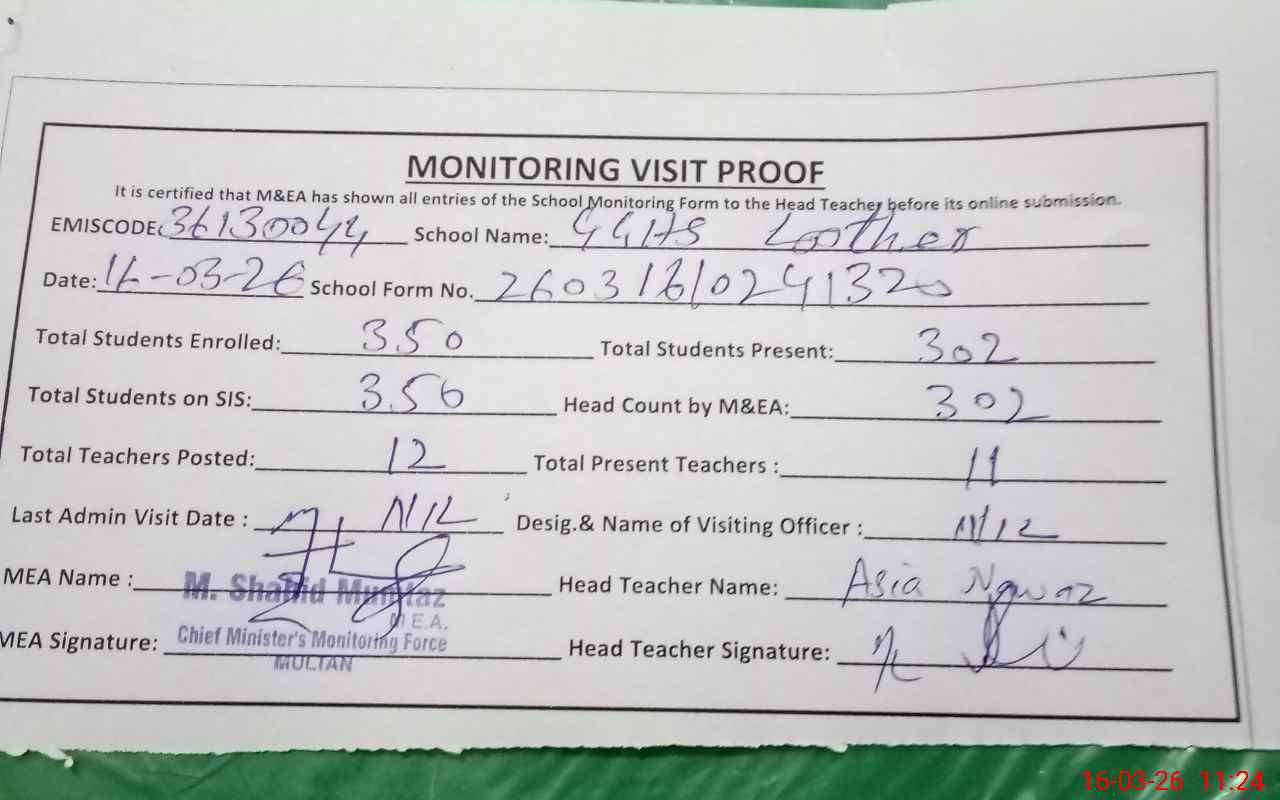 MONITORING VISIT PROOF
It is certified that M&EA has shown all entries of the School Monitoring Form to the Head Teacher before its online submission.
EMISCODE: 36130044 School Name: GGHS Loother
Date: 16-03-26 School Form No. 26031610241320
Total Students Enrolled: 350 Total Students Present: 302
Total Students on SIS: 350 Head Count by M&EA: 302
Total Teachers Posted: 12 Total Present Teachers : 11
Last Admin Visit Date : NIL Desig.& Name of Visiting Officer : NIL
MEA Name : M. Shahid Mumtaz Head Teacher Name: Asia Nawaz
M.E.A.
MEA Signature: Chief Minister's Monitoring Force Head Teacher Signature:
MULTAN
16-03-26 11:24